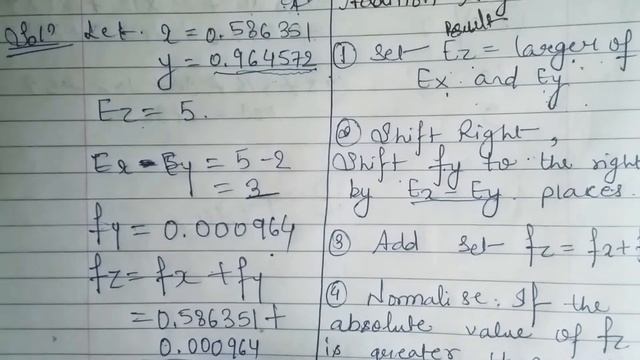 Solⁿ Let. x = 0.586351
y = 0.964572
Ez = 5.
Ex - Ey = 5 - 2
= 3
fy = 0.000964
fz = fx + fy
= 0.586351 +
0.000964
Result
① Set Ez = larger of
Ex and Ey
② Shift Right,
Shift fy to the right
by Ex - Ey places.
③ Add Set fz = fx +
④ Normalise: If the
absolute value of fz
is greater